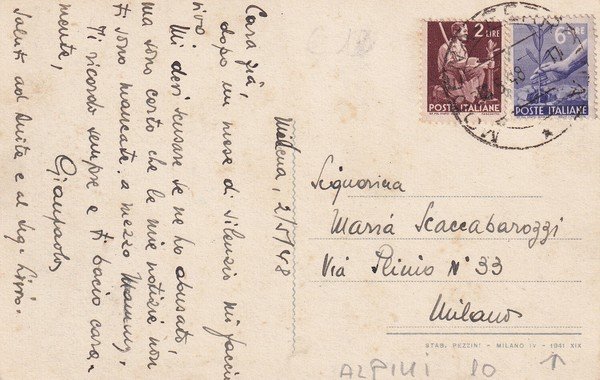 Modena, 2/5/48
Cara Già,
dopo un mese di silenzio mi faccio
vivo.
Mi devi scusare se ne ho abusato,
ma sono certo che le mie notizie non
ti sono mancate a mezzo
Ti ricordo sempre e ti bacio cara-
mente,
Gianpaolo
Saluti ad Anita e al Sig.
2 LIRE
POSTE ITALIANE
6 LIRE
POSTE ITALIANE
Signorina
Maria Scaccabarozzi
Via Plinio N° 33
Milano
STAB. PEZZINI - MILANO IV - 1941 XIX
ALPINI 10